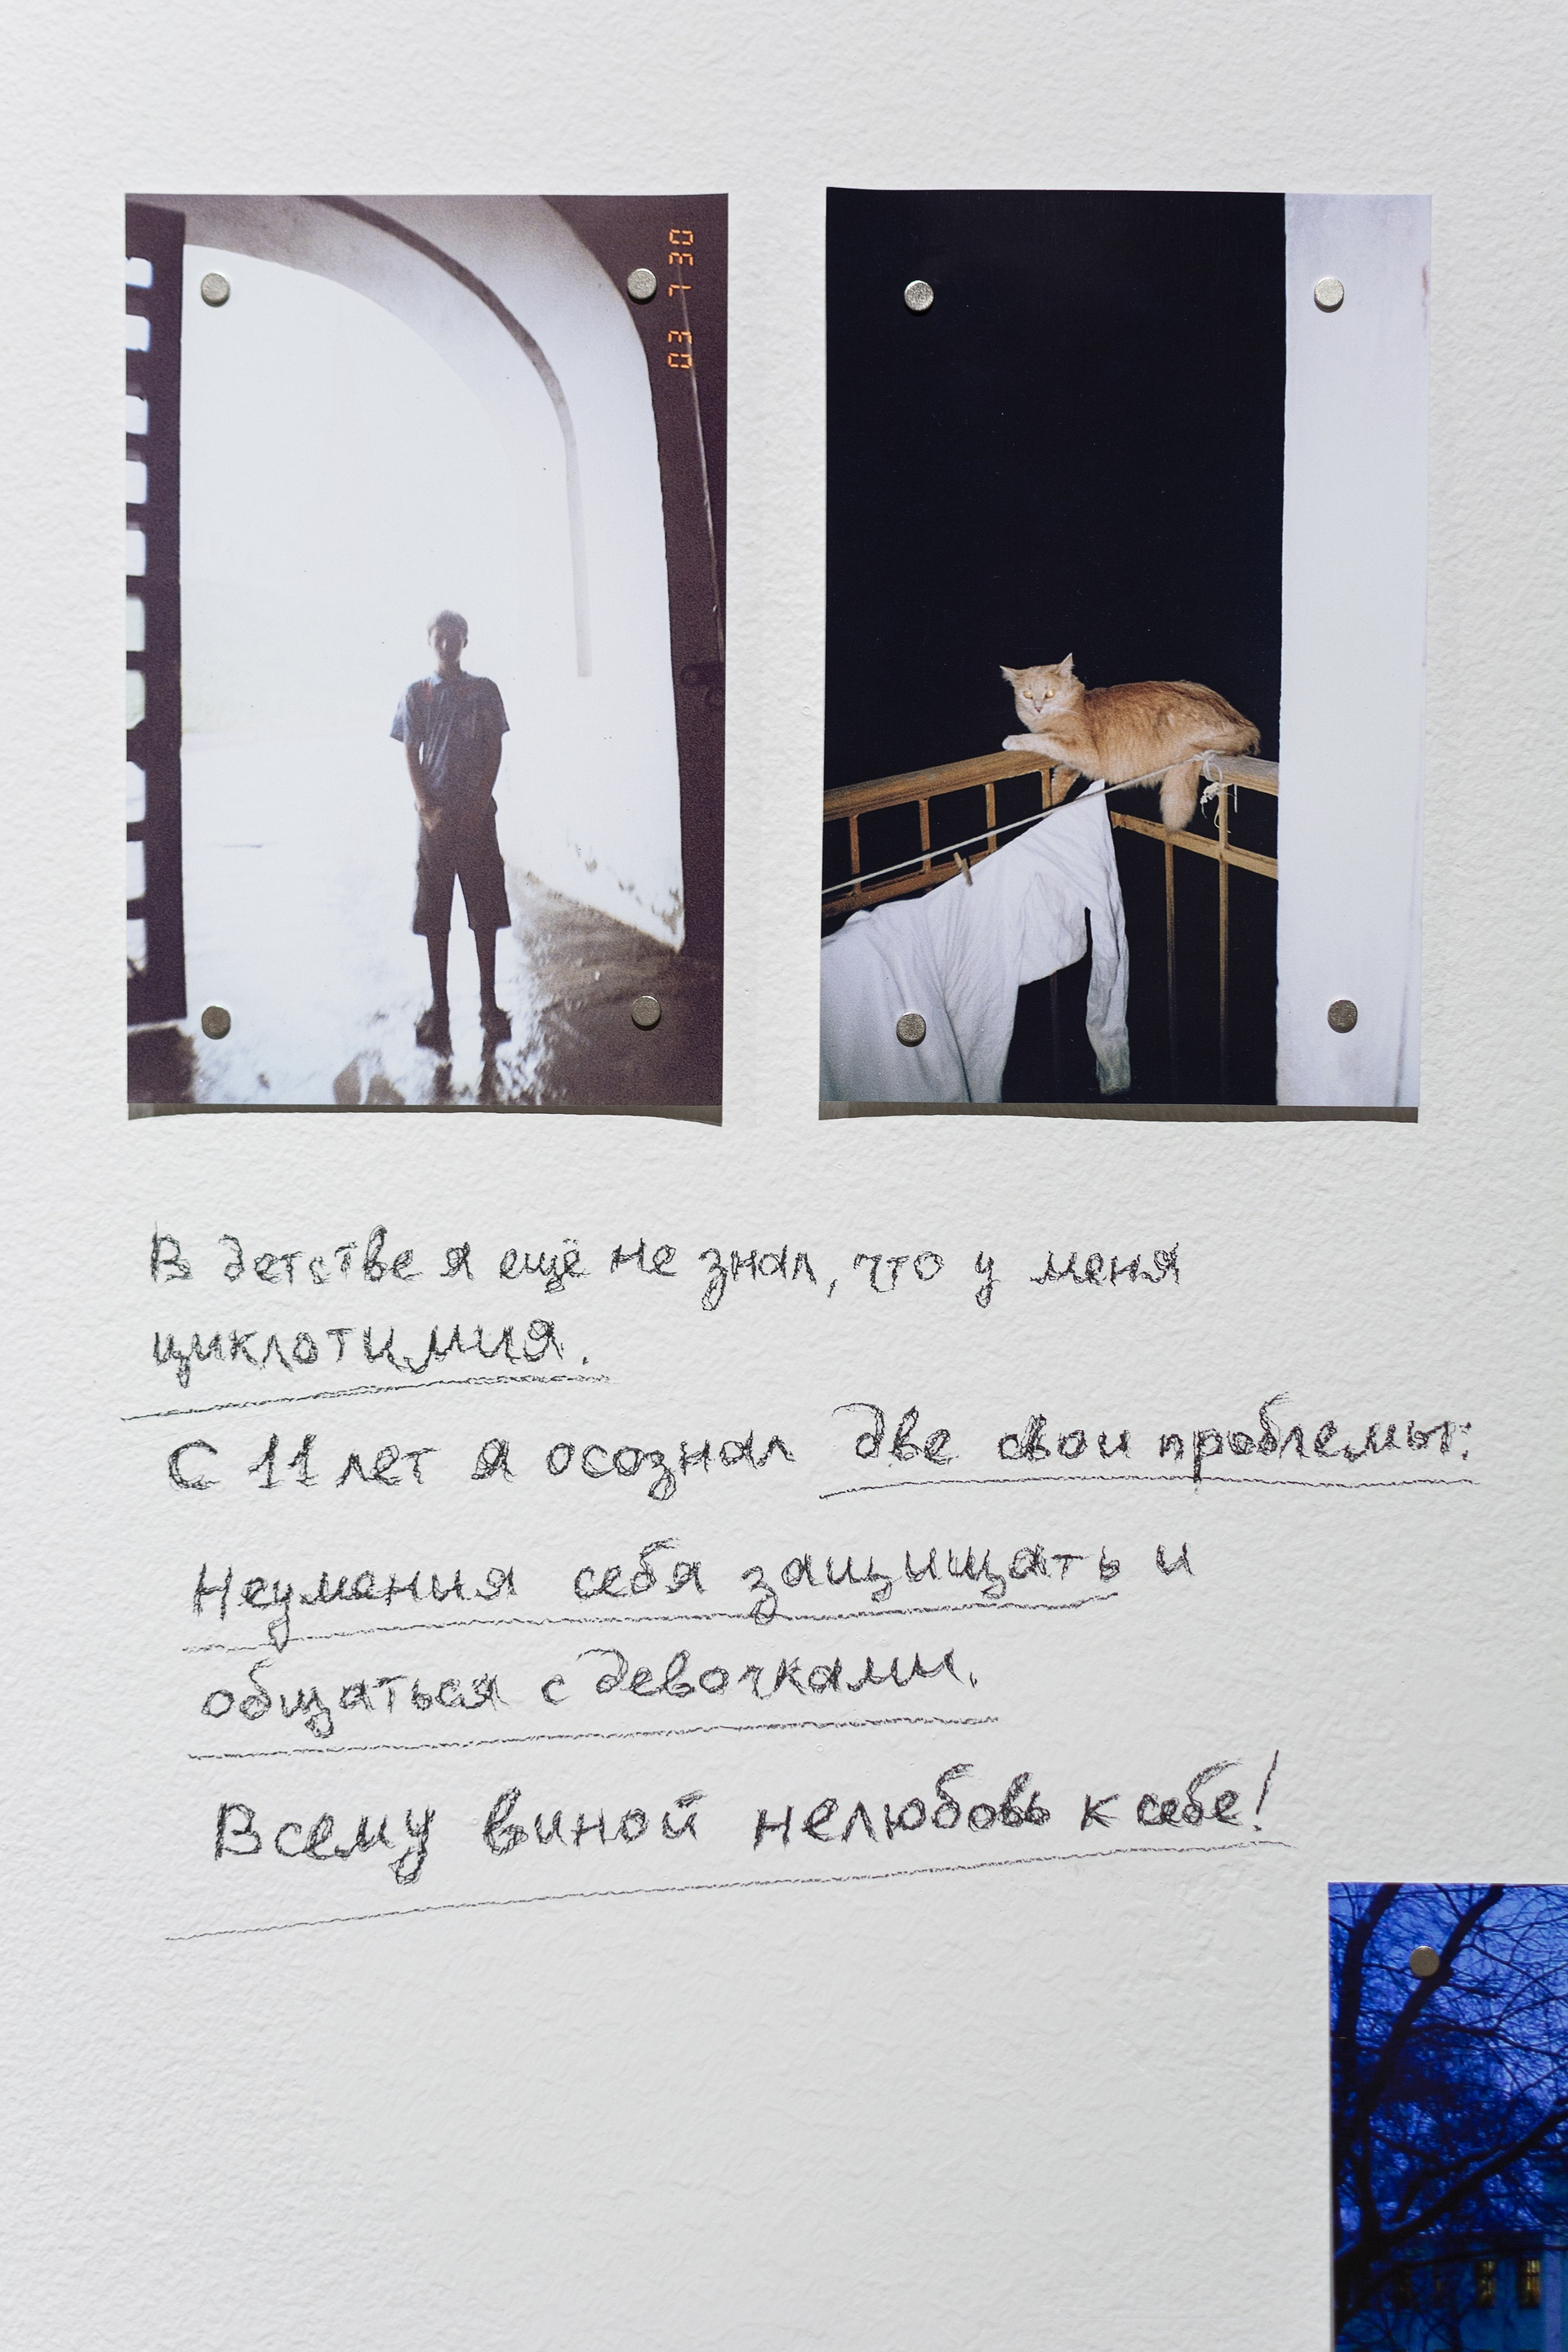 03 7 30
В детстве я ещё не знал, что у меня
циклотимия.
С 11 лет я осознал две свои проблемы:
Неумения себя защищать и
общаться с девочками.
Всему виной нелюбовь к себе!